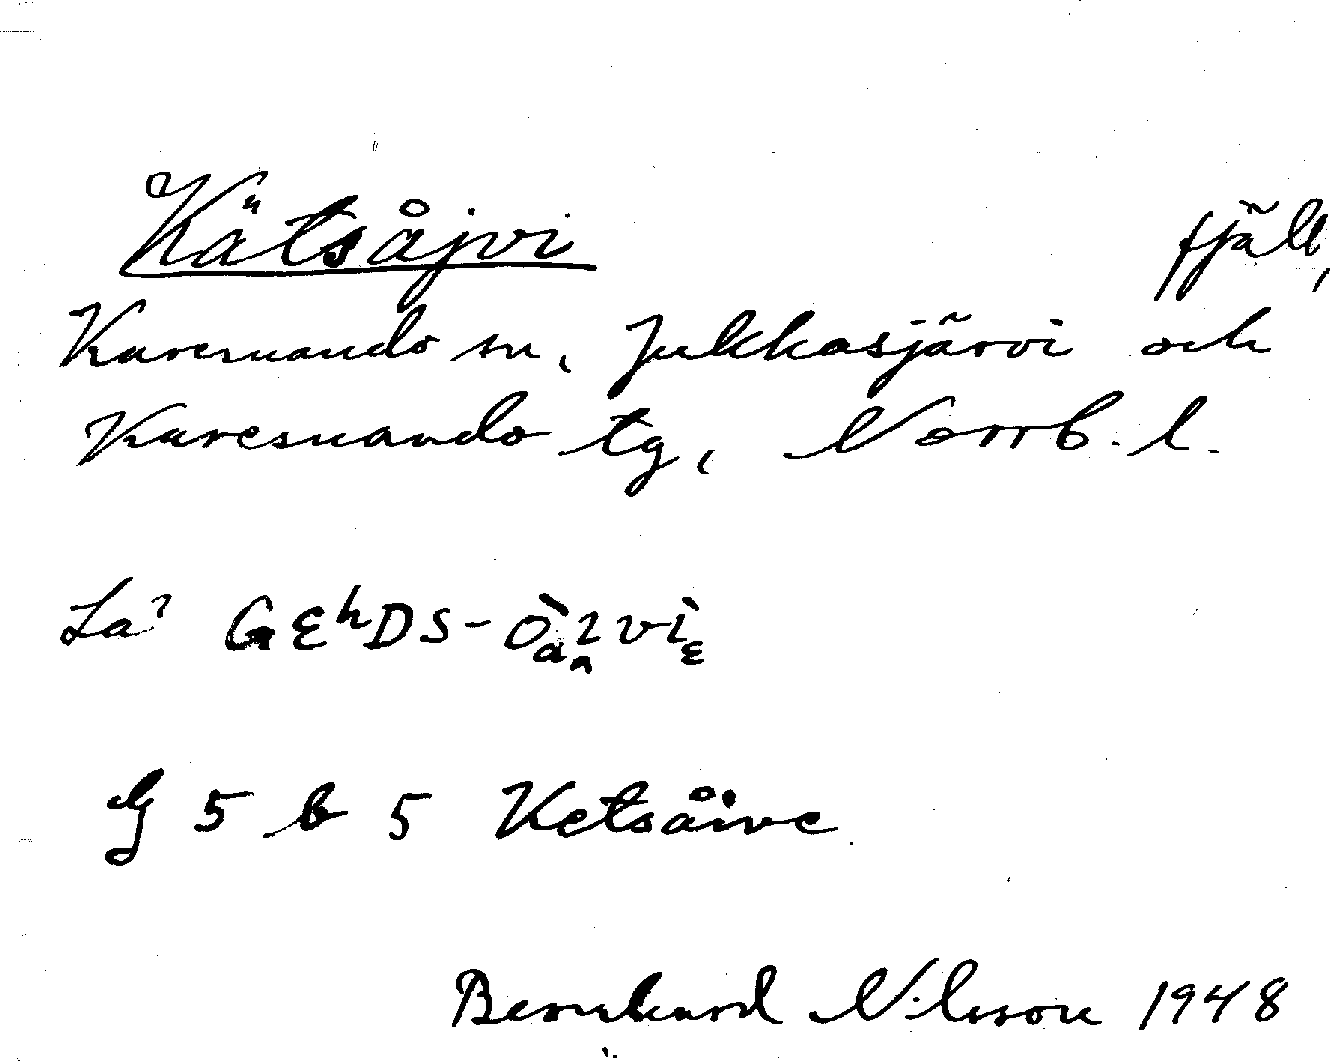 Kätsåjvi fjäll,
Karesuando sn, Jukkasjärvi och
Karesuando tg, Norrb. l.
La?
G 5 b 5 Ketsåive
Bernhard Nilsson 1948